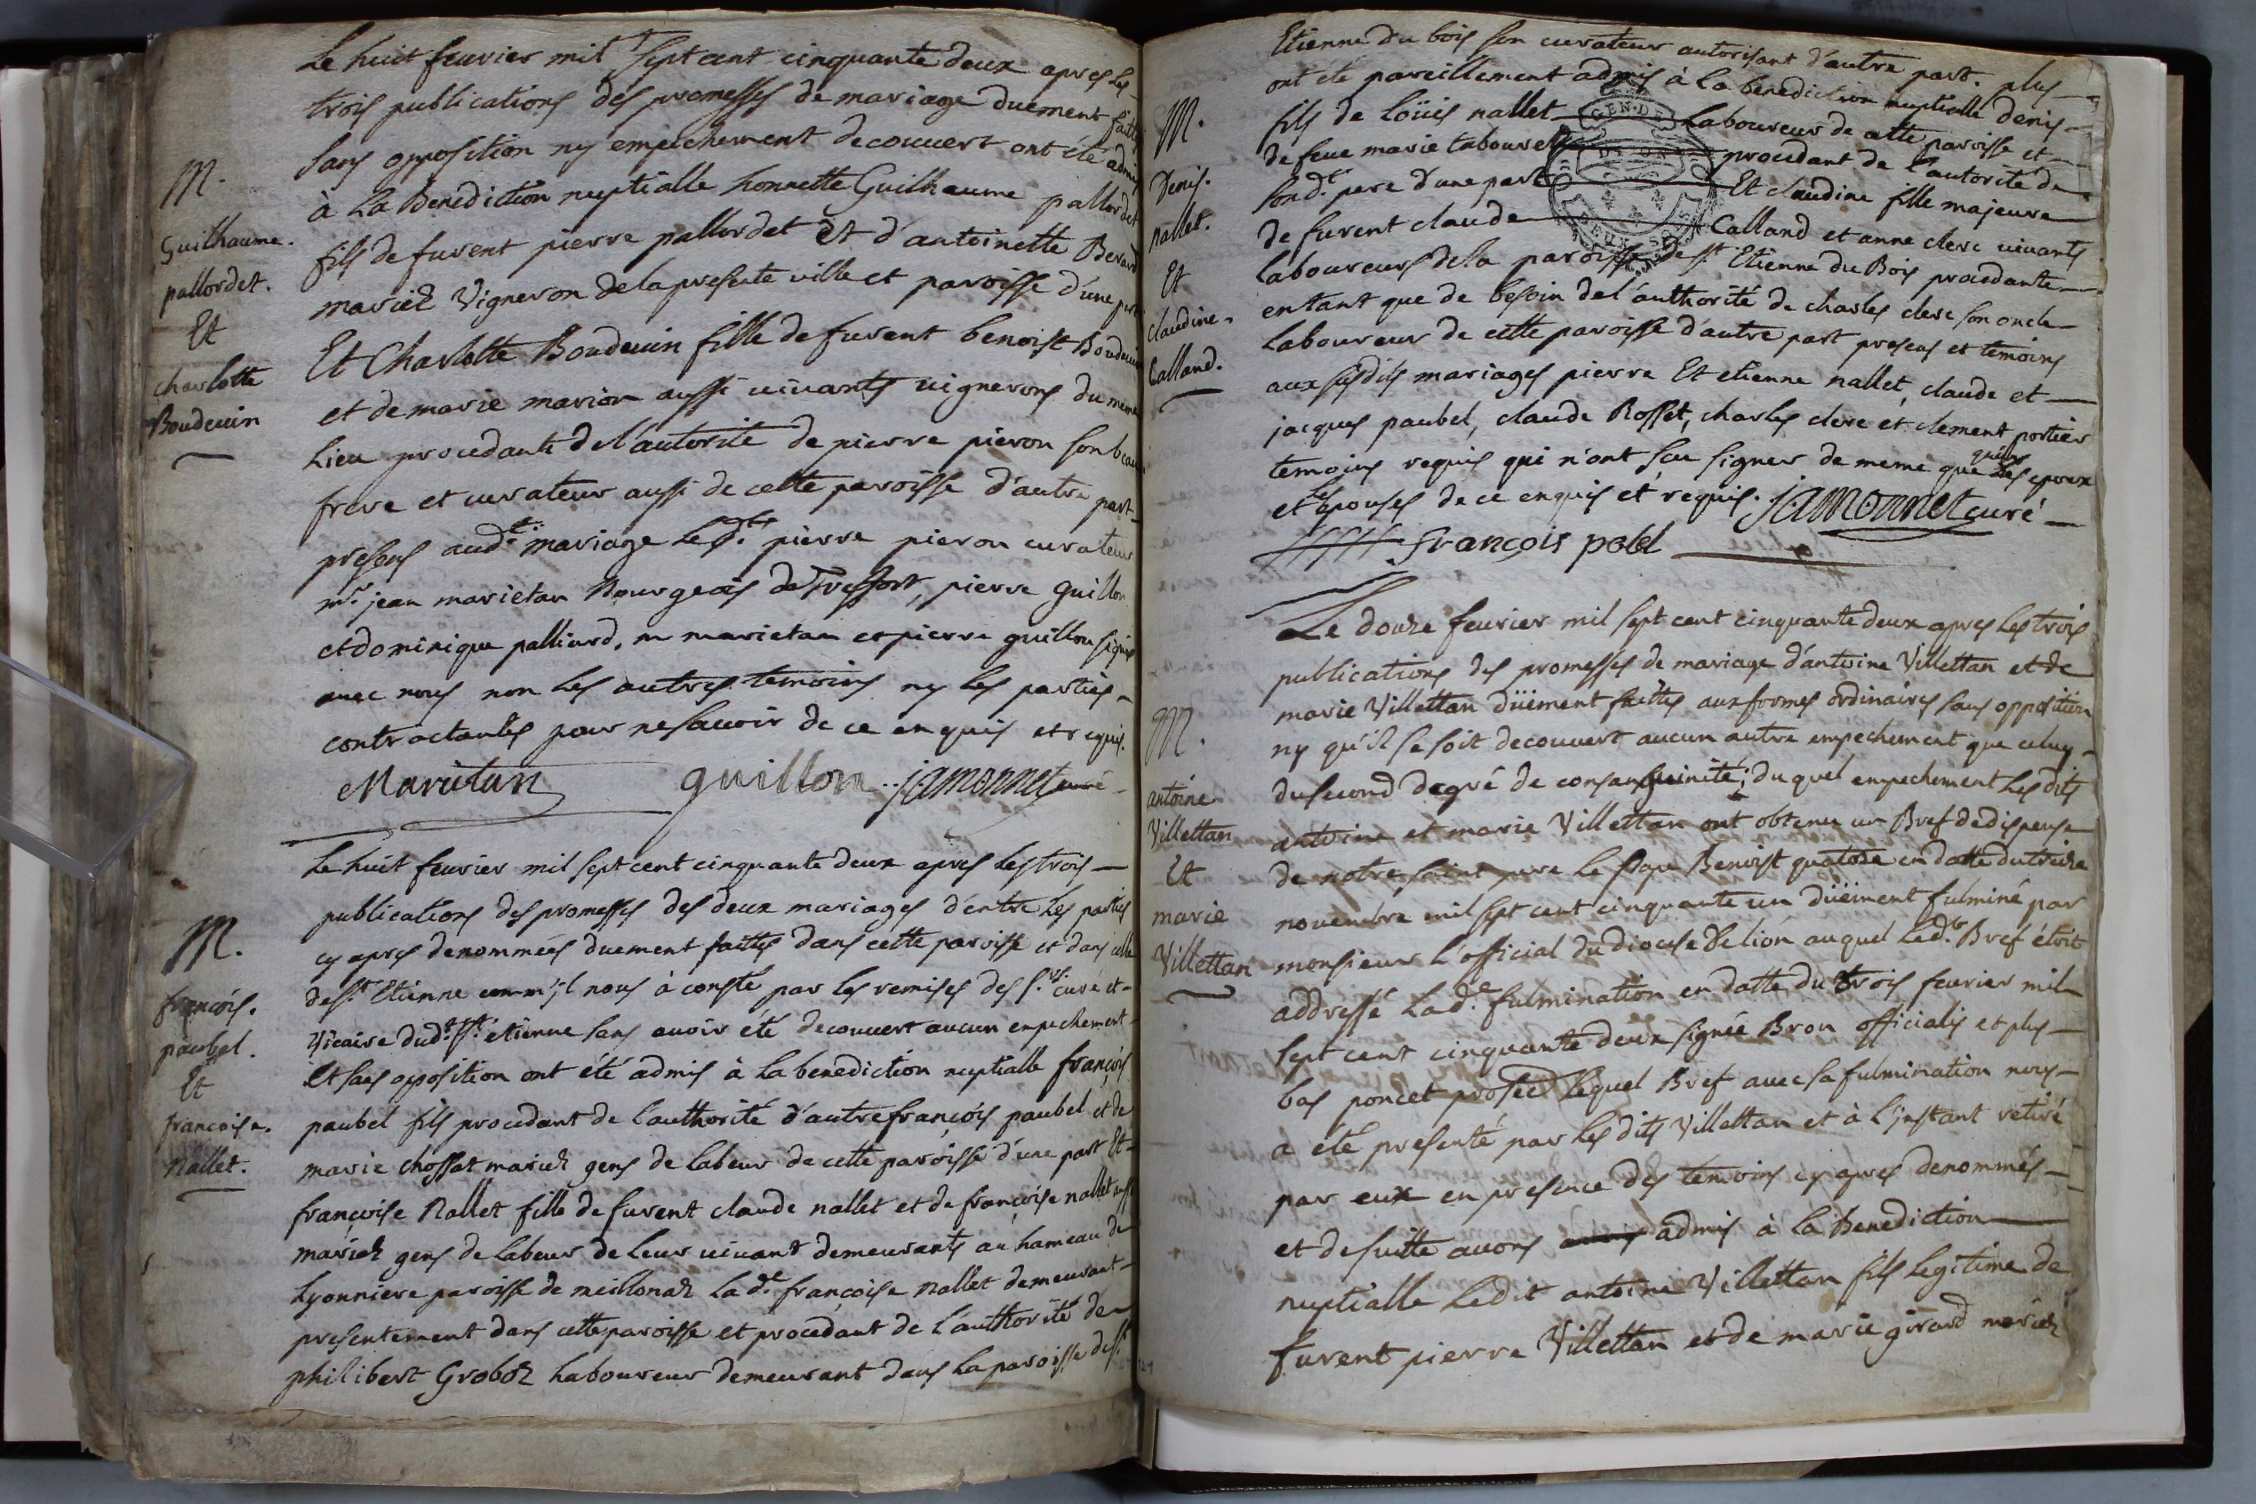 Le huit fevrier mil sept cent cinquante deux apres les
trois publications des promesses de mariage duement faittes
sans opposition ny empechement decouvert ont été admis
à La Benediction nuptialle honnette Guilhaume pallordet
fils de furent pierre pallordet Et d'antoinette Berard
mariez Vigneron de la presente ville et paroisse d'une part
Et Charlotte Boudeuin fille de furent benoist Boudeuin
et de marie marion aussi vivants vignerons du meme
Lieu procedante de l'autorité de pierre pieron son beau
frere et curateur aussi de cette paroisse d'autre part
presens aud.t mariage Led.t pierre pieron curateur
mr. jean marietan Bourgeois de Treffort, pierre guillon
et dominique palliard, m marietan et pierre guillon signés
avec nous non Les autres temoins ny Les parties
contractantes pour ne savoir de ce enquis et requis.
Marietan guillon jamonnet curé
M.
Guilhaume.
pallordet.
Et
charlotte
Boudeuin
Le huit fevrier mil sept cent cinquante deux apres Les trois
publications des promesses des deux mariages d'entre Les parties
cy apres denommées duement faittes dans cette paroisse et dans celle
de St. Etienne comm'jl nous à consté par les remises des Srs. curé et
Vicaire dud.t St. etienne sans avoir été decouvert aucun empechement
Et sans opposition ont été admis à La benediction nuptialle françois
paubel fils procedant de l'authorité d'autre françois paubel et de
marie chossat mariez gens de labeur de cette paroisse d'une part Et
françoise Nallet fille de furent claude nallet et de françoise nallet aussi
mariez gens de Labeur de leur vivant demeurants au hameau de
Lyonniere paroisse de meillonaz La d.e françoise nallet demeurant
presentement dans cette paroisse et procedant de L'authorité de
philibert Groboz Laboureur demeurant dans la paroisse de St.
M.
françois.
paubel.
Et
francoise.
Nallet.
Etienne du bois son curateur autorisant d'autre part. plus
ont été pareillement admis à La benediction nuptialle denis
fils de Loüis nallet Laboureur de cette paroisse et
de feue marie tabouret procedant de l'autorité de
sond.t pere d'une part Et claudine fille majeure
de furent claude Calland et anne clerc vivants
Laboureurs de la paroisse de St. Etienne du Bois procedante
entant que de besoin de l'authorité de charles clerc son oncle
Laboureur de cette paroisse d'autre part presens et temoins
aux susdits mariages pierre Et etienne nallet, claude et
jacques paubel, claude Rosset, charles clerc et clement portier
temoins requis qui n'ont scu signer de meme que les epoux
et les epouses de ce enquis et requis. jamonnet curé
françois pobel
M.
Denis.
nallet.
Et
claudine.
Calland.
Le douze fevrier mil sept cent cinquante deux apres Les trois
publications des promesses de mariage d'antoine Villettan et de
marie Villettan düement faittes aux formes ordinaires sans opposition
ny qu'il se soit decouvert aucun autre empechement que celuy
du second degré de consanguinité; du quel empechement Les dits
antoine et marie Villettan ont obtenu un Bref de dispense
de notre saint pere Le Pape Benoist quatorze en datte du treize
novembre mil sept cent cinquante un düement fulminé par
monsieur L'official du diocese de lion auquel Led.t Bref étoit
addressé Lad.e fulmination en datte du trois fevrier mil
sept cent cinquante deux signée Bron officialis et plus
bas poncet Lequel Bref avec sa fulmination nous
a été presenté par Les dits Villettan et à L'jnstant retiré
par eux en presence des temoins cy apres denommés
et de suitte avons admis à la Benediction
nuptialle Ledit antoine Villettan fils Legitime de
furent pierre Villettan et de marie girard mariez
M.
antoine
Villettan
Et
marie
Villettan